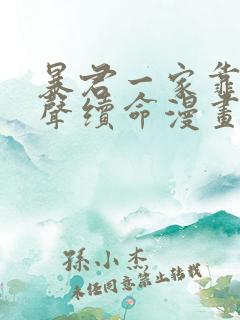 暴君一家靠
聲續命漫畫
孫小杰
未经同意禁止转载